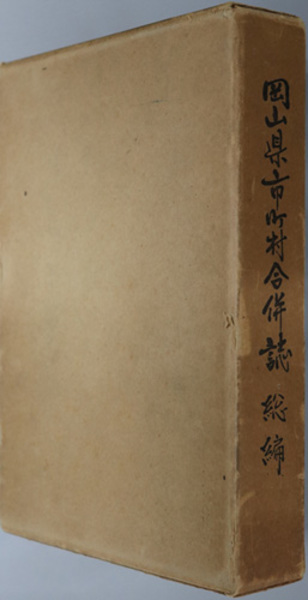 岡山県市町村合併誌 総編